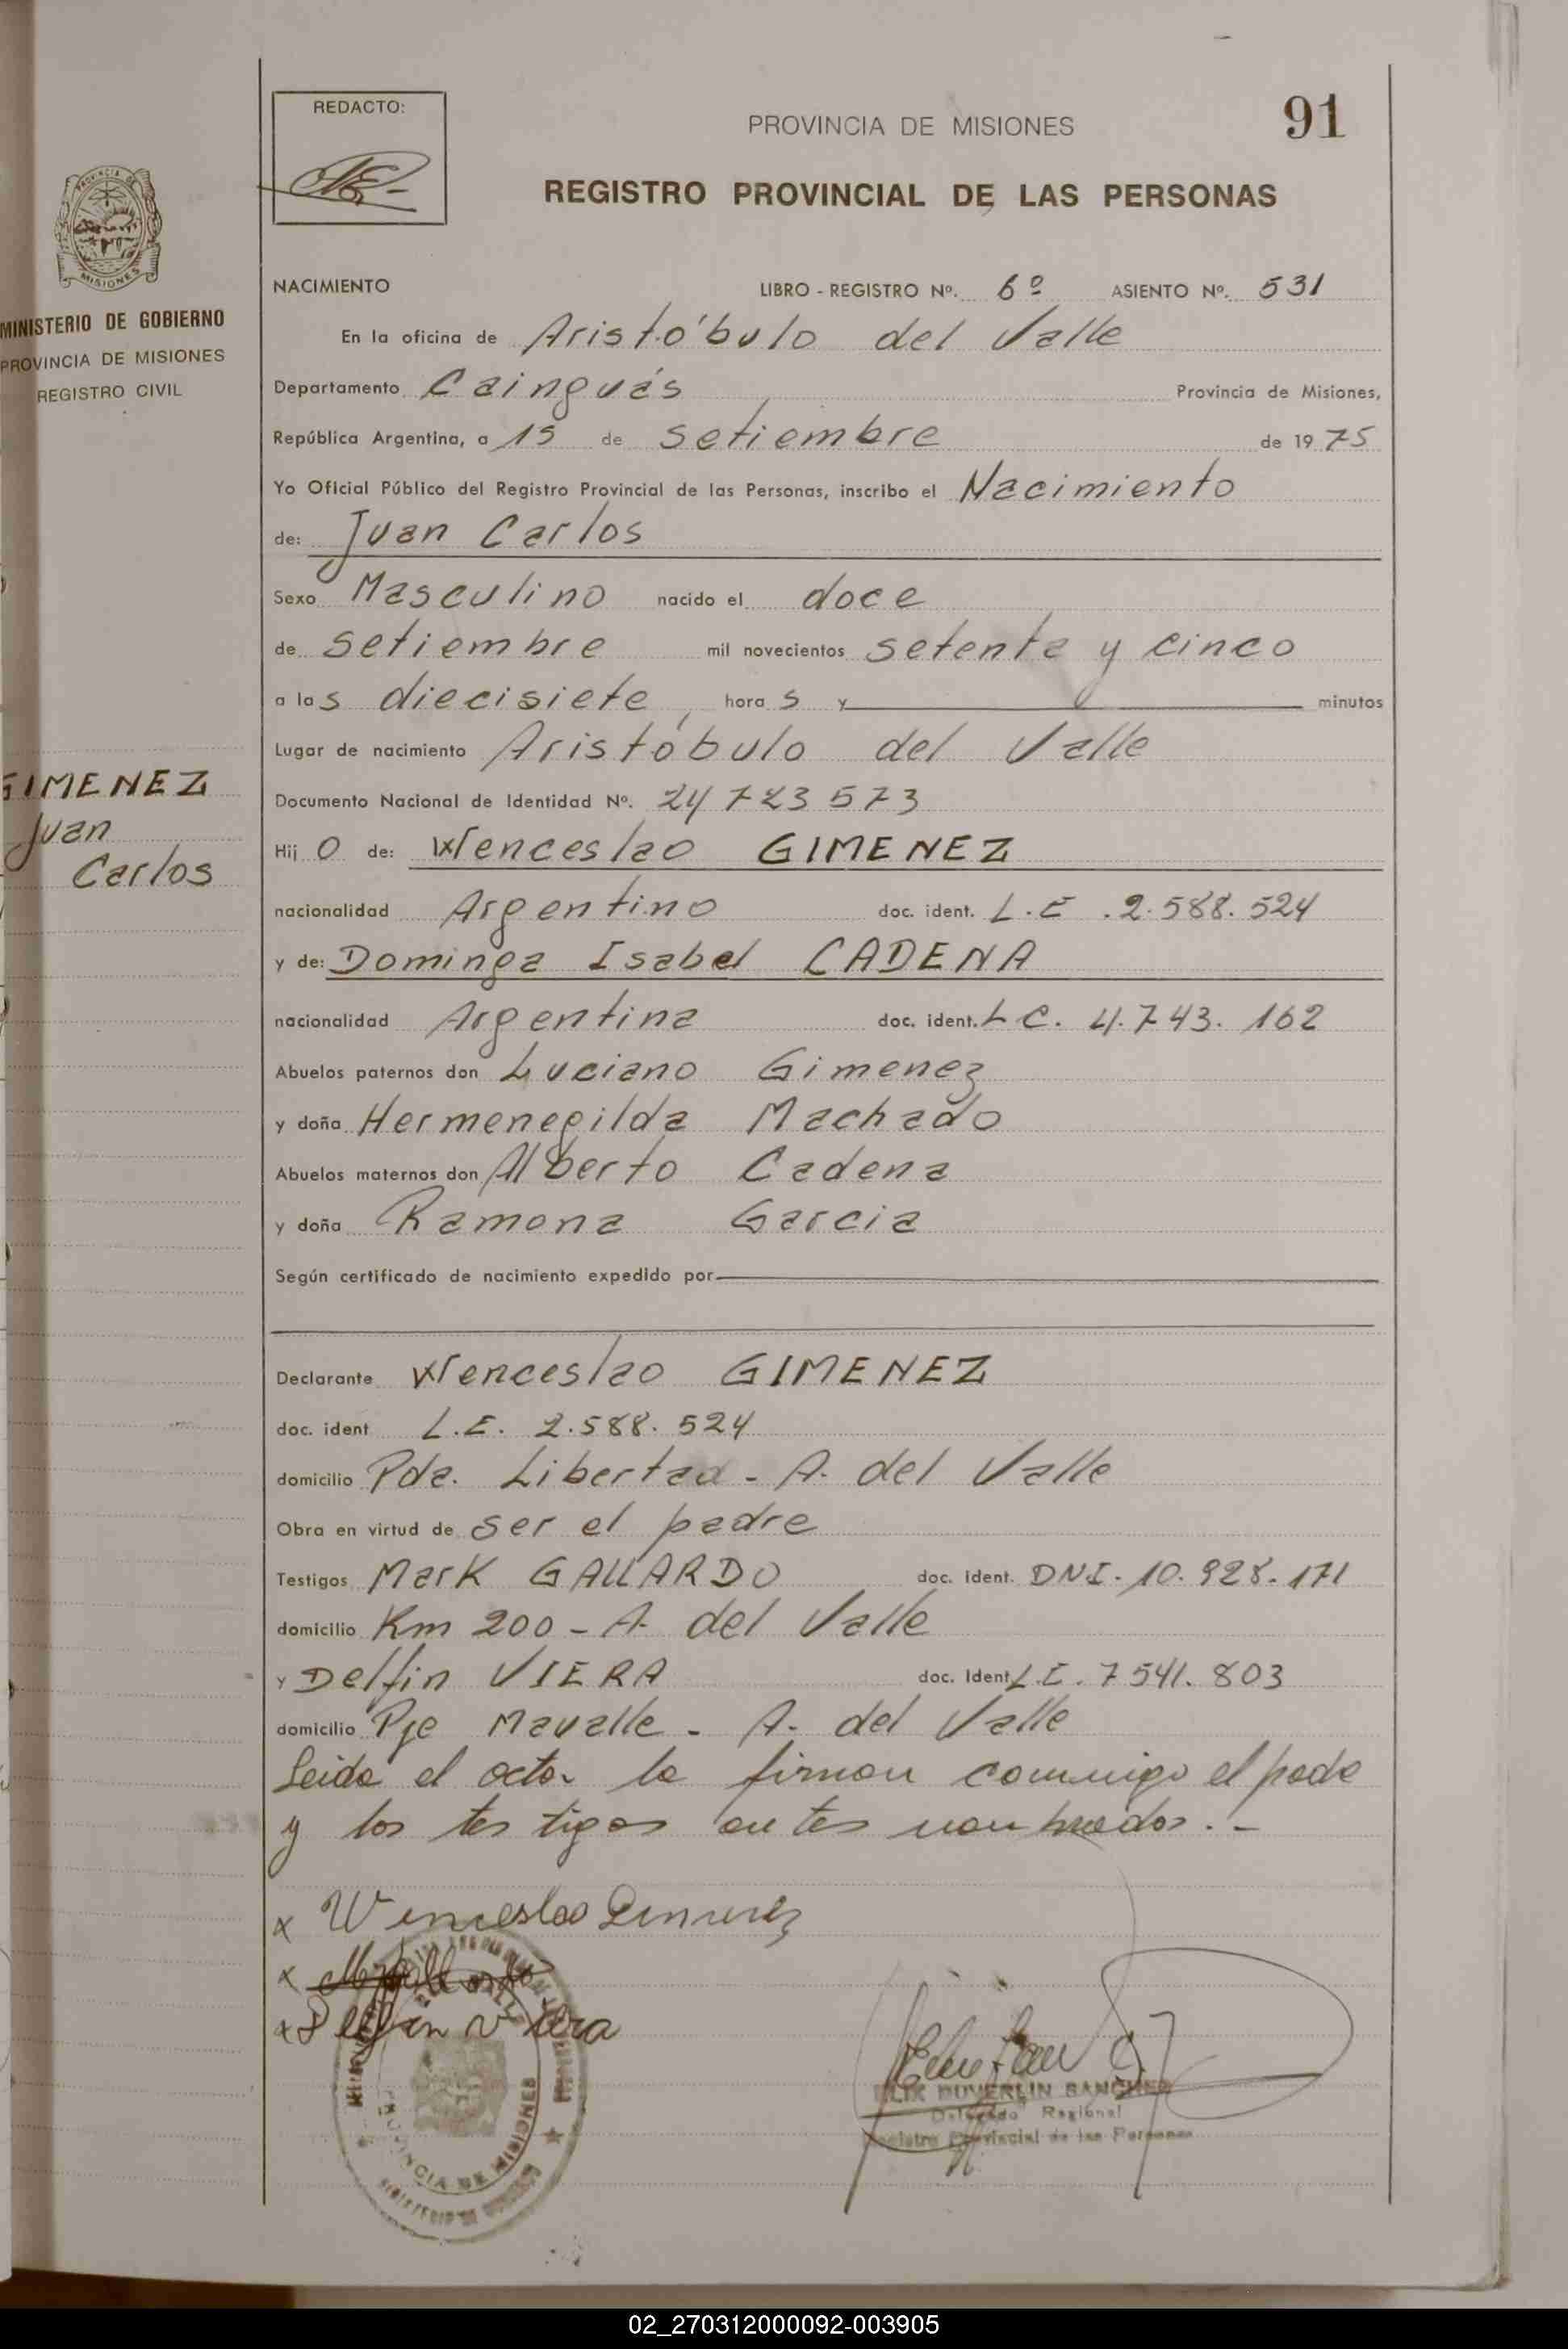 REDACTO:
PROVINCIA DE MISIONES
91
REGISTRO PROVINCIAL DE LAS PERSONAS
MISIONES
MINISTERIO DE GOBIERNO
PROVINCIA DE MISIONES
REGISTRO CIVIL
GIMENEZ
Juan
Carlos
NACIMIENTO LIBRO - REGISTRO Nº. 6º ASIENTO Nº. 531
En la oficina de Aristóbulo del Valle
Departamento Cainguás Provincia de Misiones,
República Argentina, a 15 de setiembre de 1975
Yo Oficial Público del Registro Provincial de las Personas, inscribo el Nacimiento
de: Juan Carlos
Sexo Masculino nacido el doce
de setiembre mil novecientos setenta y cinco
a las diecisiete hora s y minutos
Lugar de nacimiento Aristóbulo del Valle
Documento Nacional de Identidad Nº. 24 723 573
Hij o de: Wenceslao GIMENEZ
nacionalidad Argentino doc. ident. L.E. 2.588.524
y de: Dominga Isabel CADENA
nacionalidad Argentina doc. ident. L C. 4.743.162
Abuelos paternos don Luciano Gimenez
y doña Hermenegilda Machado
Abuelos maternos don Alberto Cadena
y doña Ramona Garcia
Según certificado de nacimiento expedido por
Declarante Wenceslao GIMENEZ
doc. ident L.E. 2.588.524
domicilio Pda. Libertad - A. del Valle
Obra en virtud de ser el padre
Testigos Mark GALLARDO doc. Ident. DNI. 10.928.171
domicilio Km 200 - A. del Valle
y Delfin VIERA doc. Ident L.E. 7541.803
domicilio Pje Mavalle - A. del Valle
Leida el acta. la firman conmigo el padre
y los testigos antes nombrados. -
x Wenceslao Gimenez
x
x Delfin Viera
PROVINCIA DE MISIONES
FELIX DUVERLIN SANCHEZ
Delegado Regional
Registro Provincial de las Personas
02_270312000092-003905